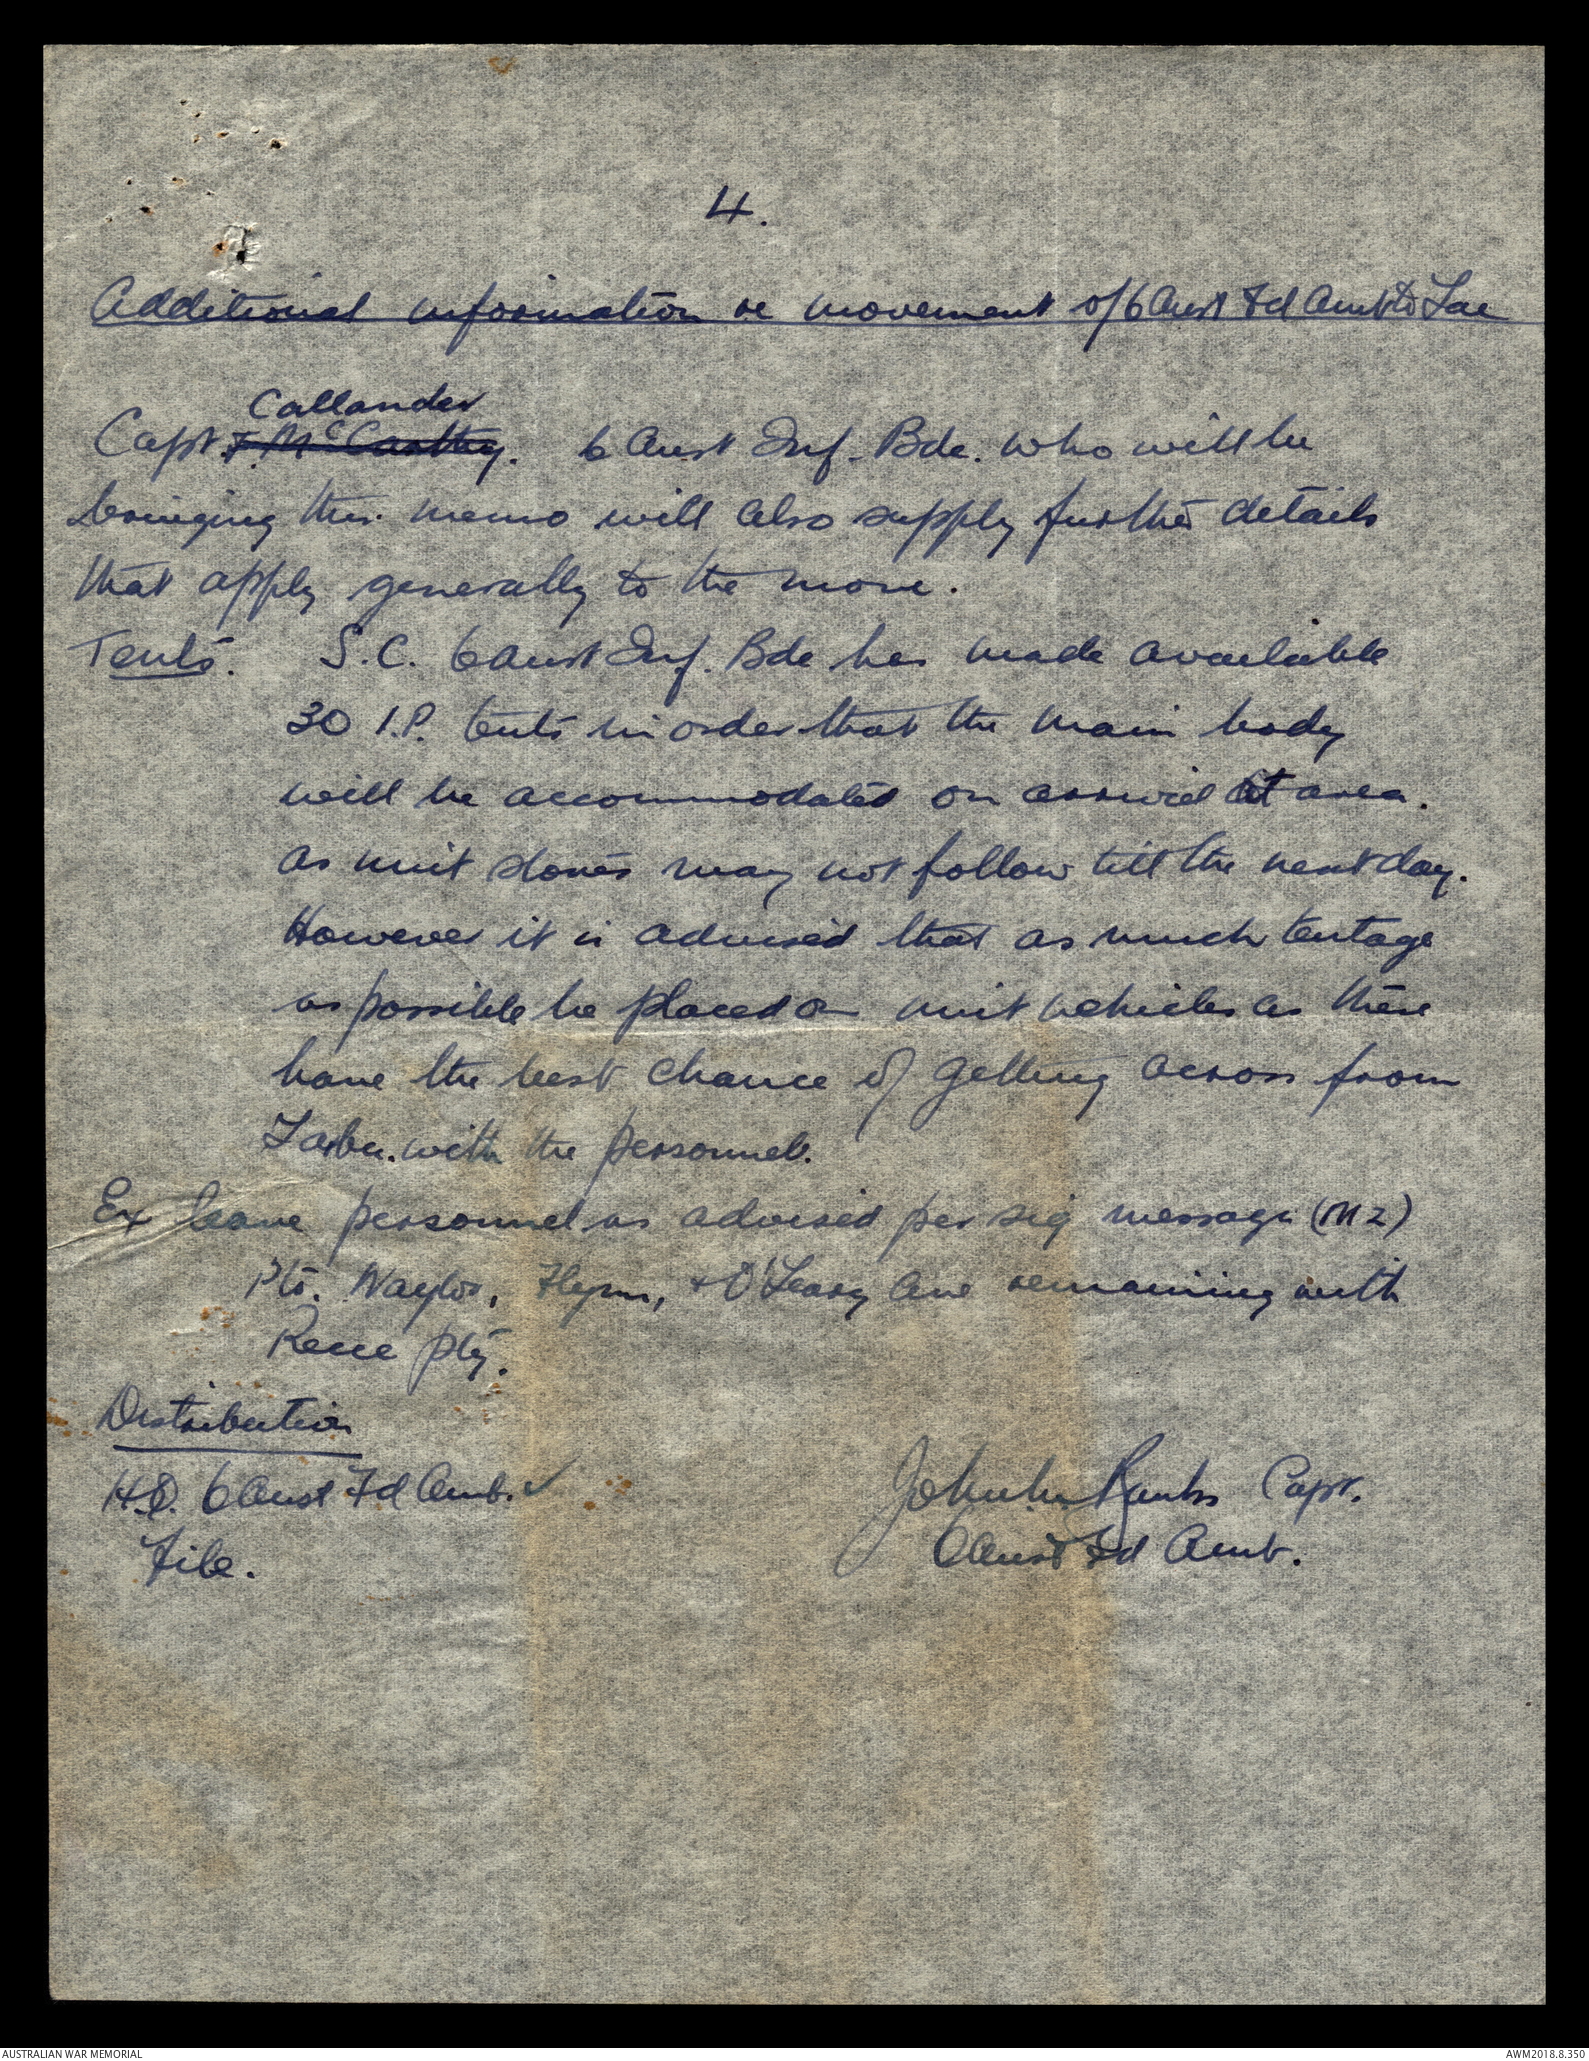 4.
Additional information re movement of 6 Aust Fd Amb to Lae
Callander
Capt. F. McCarthy. 6 Aust Inf. Bde. who will be
bringing this memo will also supply further details
that apply generally to the move.
Tents. S.C. 6 Aust Inf. Bde has made available
30 I.P. tents in order that the main body
will be accommodated on arrival at area.
as unit stores may not follow till the next day.
However it is advised that as much tentage
as possible be placed on unit vehicles as these
have the best chance of getting across from
with the personnel.
Ex leave personnel as advised per sig message (M2)
Pts. Naylor, Flynn, & O'Leary are remaining with
Recce pty.
Distribution
H.Q. 6 Aust Fd Amb. ✓
File.
Capt.
6 Aust Fd Amb.
AUSTRALIAN WAR MEMORIAL
AWM2018.8.350